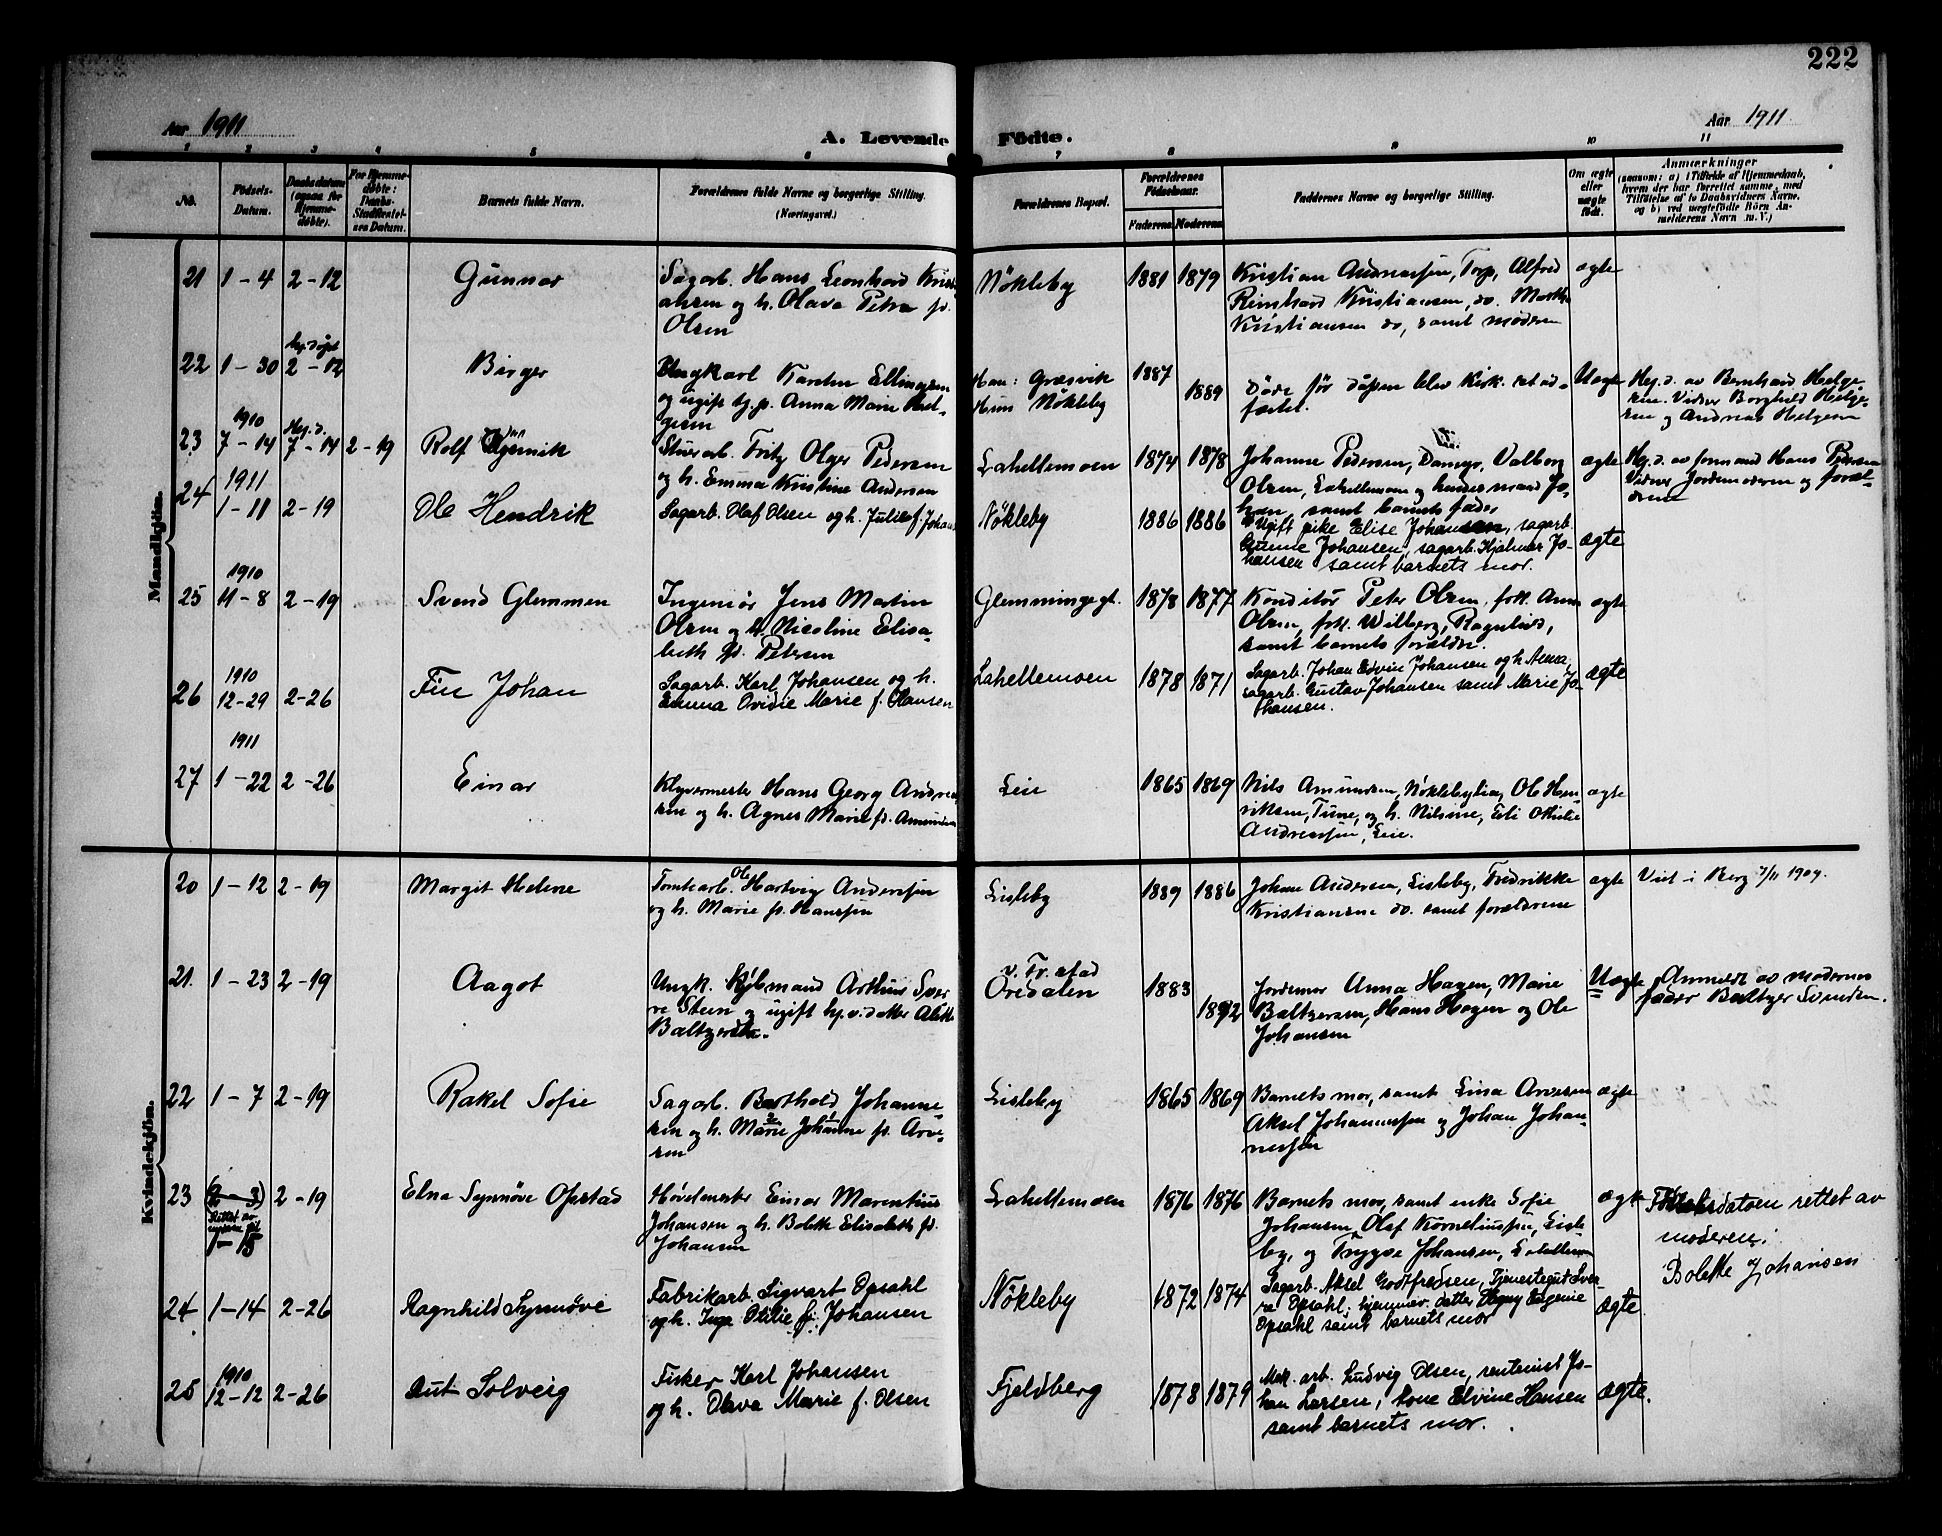 222
Aar 1911
A. Levende Fødte.
Aar 1911
1 2 3 4 5 6 7 8 9 10 11
No.
Fødsels-Datum.
Daabsdatum (ogsaa for Hjemmedøbte).
For Hjemmedøbte: Daabs-Stadfæstelses Datum.
Barnets fulde Navn.
Forældrenes fulde Navne og borgerlige Stilling. (Næringsvei.)
Forældrenes Bopæl.
Forældrenes Fødselsaar.
Faderens Moderens
Faddernes Navne og borgerlige Stilling.
Om ægte eller uægte født.
Anmærkninger
(saasom: a) i Tilfælde af Hjemmedaab,
hvem der har forrettet samme, med
Tilføielse af to Daabsvidners Navne,
og b) ved uægtefødte Børn Anmelderens
Navn m. V.)
Mandkjøn.
21 1-4 2-12 Gunnar
Sagarb. Hans Leonhard Kristiansen og h. Olava Petra fd.
Olsen
Nökleby 1881 1879
Kristian Andreassen, Torp, Alfred
Reinhard Kristiansen, do. Martha
Kristiansen do, samt moderen
ægte
22 1-30 Hj. døpt 2-12 Birger
Ungkarl Karsten Ellingsen
og ugift tj.p. Anna Marie Helgesen
Han: Græsvik
Hun Nökleby
1887 1889
Døde før dåpen blev kirk. stadfæstet.
Uægte
Hj.d. av Bernhard Helgesen. Vidner Borghild Helgesen og Andreas Helgesen
23 1910 7-14 Hj.d. 7-14 2-19 Rolf
Stuerarb. Fritz Olger Pedersen
og h. Emma Kristine Andersen
Lahellemoen 1874 1878
Johanne Pedersen, Valborg
Olsen, Lahellemoen og hendes mand Johan, samt barnets fader
ægte
Hj.d. av formand Hans
Vidner Jordemoderen og forældrene
24 1911 1-11 2-19 Ole Hendrik
Sagarb. Olaf Olsen og h. Julie f. Johans
Nökleby 1886 1886
Ugift pike Elise Johansen, sagarb.
Gunne Johansen, sagarb. Hjalmar Johansen samt barnets mor.
ægte
25 1910 11-8 2-19 Svend Glemmen
Ingeniør Jens Martin
Olsen og h. Nicoline Elisabeth fd. Petersen
Glemmingegt. 1878 1877
Konditor Peter Olsen, frk. Anna
Olsen, frk. Wilberg, Ragnhild,
samt barnets forældre.
ægte
26 1910 12-29 2-26 Fin Johan
Sagarb. Karl Johansen og h.
Emma Ovidie Marie f. Olausen
Lahellemoen 1878 1871
Sagarb. Johan Edvin Johansen og h. Anna,
sagarb. Gustav Johansen samt Marie Johansen.
ægte
27 1911 1-22 2-26 Einar
Klyvermester Hans Georg Andreassen og h. Agnes Marie fd. Amundsen
Leie 1865 1869
Nils Amundsen, Nöklebylia, Ole Henriksen, Tune, og h. Nilsine, Eli Othilie
Andreassen, Leie.
ægte
Kvindekjøn.
20 1-12 2-19 Margit Helene
Tomtearb. Ole Hartvig Anderssen
og h. Marie fd. Hanssen
Lisleby 1889 1886
Johan Andersen, Lisleby, Fredrikke
Kristiansen do. samt forældrene
ægte
Viet i Berg 7/11 1909.
21. 1-23 2-19 Aagot
Ungk. Kjøbmand Arthur Sverre Steen og ugift hj.v. datter
Baltzersen.
v. Fr.stad
Oredalen
1883 1892
Jordemor Anna Hagen, Marie
Baltzersen, Hans Hagen og Ole
Johansen
Uægte
Anmeldt av moderens
fader Baltzer Svendsen.
22 1-7 2-19 Rakel Sofie
Sagarb. Barthold Johannesen og h. Marie Johanne fd. Arvesen
Lisleby 1865 1869
Barnets mor, samt Lina Arvesen
Aksel Johannessen og Johan Johannessen
ægte
23 (2-3) 2-19 Elna Synnøve Opstad
Rettet 1-15
Høvelmester Einar Marentius
Johansen og h. Bolette Elisabeth fd.
Johansen
Lahellemoen 1876 1876
Barnets mor, samt enke Sofie
Johansen, Olaf Korneliussen, Lisleby, og Trygve Johansen, Lahellemoen
ægte
Fødselsdatoen rettet av
moderen:
Bolette Johansen
24 1-14 2-26 Ragnhild Synnøve
Fabrikarb. Sigvart Opsahl
og h. Inga Otilie f. Johansen
Nökleby 1872 1874
Sagarb. Aksel Godtfredsen, Tjenestegut Sverre Opsahl, hjemmev. datter Signy Eugenie
Opsahl samt barnets mor
ægte
25 1910 12-12 2-26 Aut Solveig
Fisker Karl Johansen
og h. Olava Marie f. Olsen
Fjeldberg 1878 1879
Mek. arb. Ludvig Olsen, rentenist Johan Larsen, kone Elvine Hansen
samt barnets mor.
ægte.